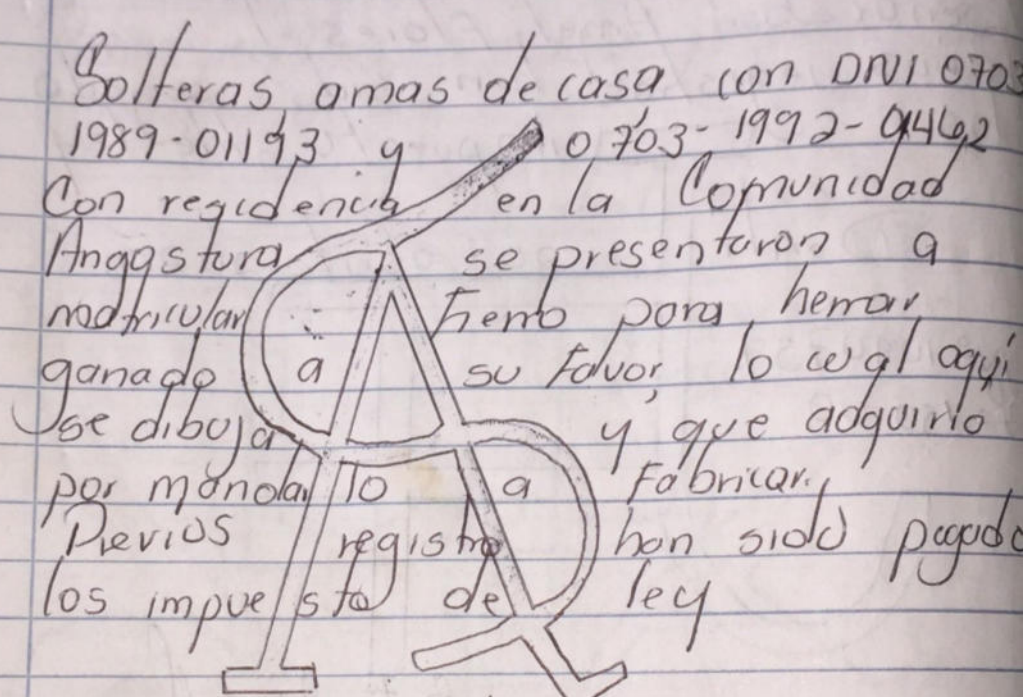 Solteras, amas de casa con DNI 0703
1989-01193 y 0703-1992-01462
Con recidencia en la Comunidad
Angostura se presentaron a
matricular fierro para herrar
ganado a su favor, lo cual aqui
se dibuja y que adquirio
por mandarlo a Fabricar.
Previos registro han sido pagado
los impuesto de ley